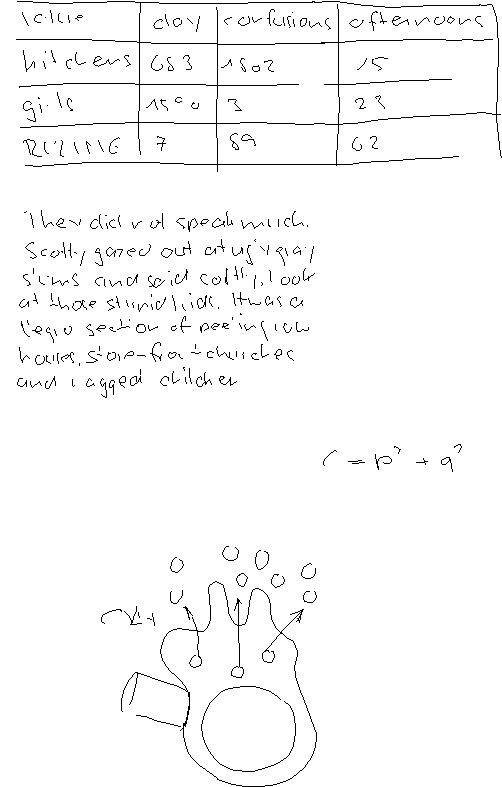 day confusions afternoons
kitchens 683 1802 15
girls 1590 3 23
7 89 62
They did not speak much.
Scotty gazed out at ugly gray
slums and said softly, look
at those stupid kids. It was a
Negro section of peeling row
houses, store-front churches
and ragged children
r = p² + q²